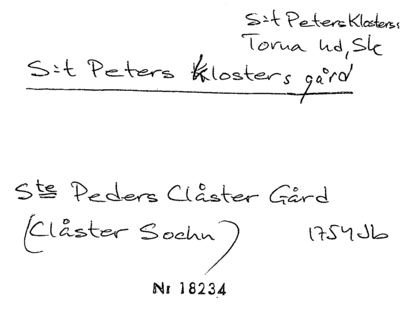 S:t Peters Klosters:
Torna hd, Sk
S:t Peters Klosters gård
Ste Peders Clåster Gård
(Clåster Sochn) 1754 Jb
Nr 18234